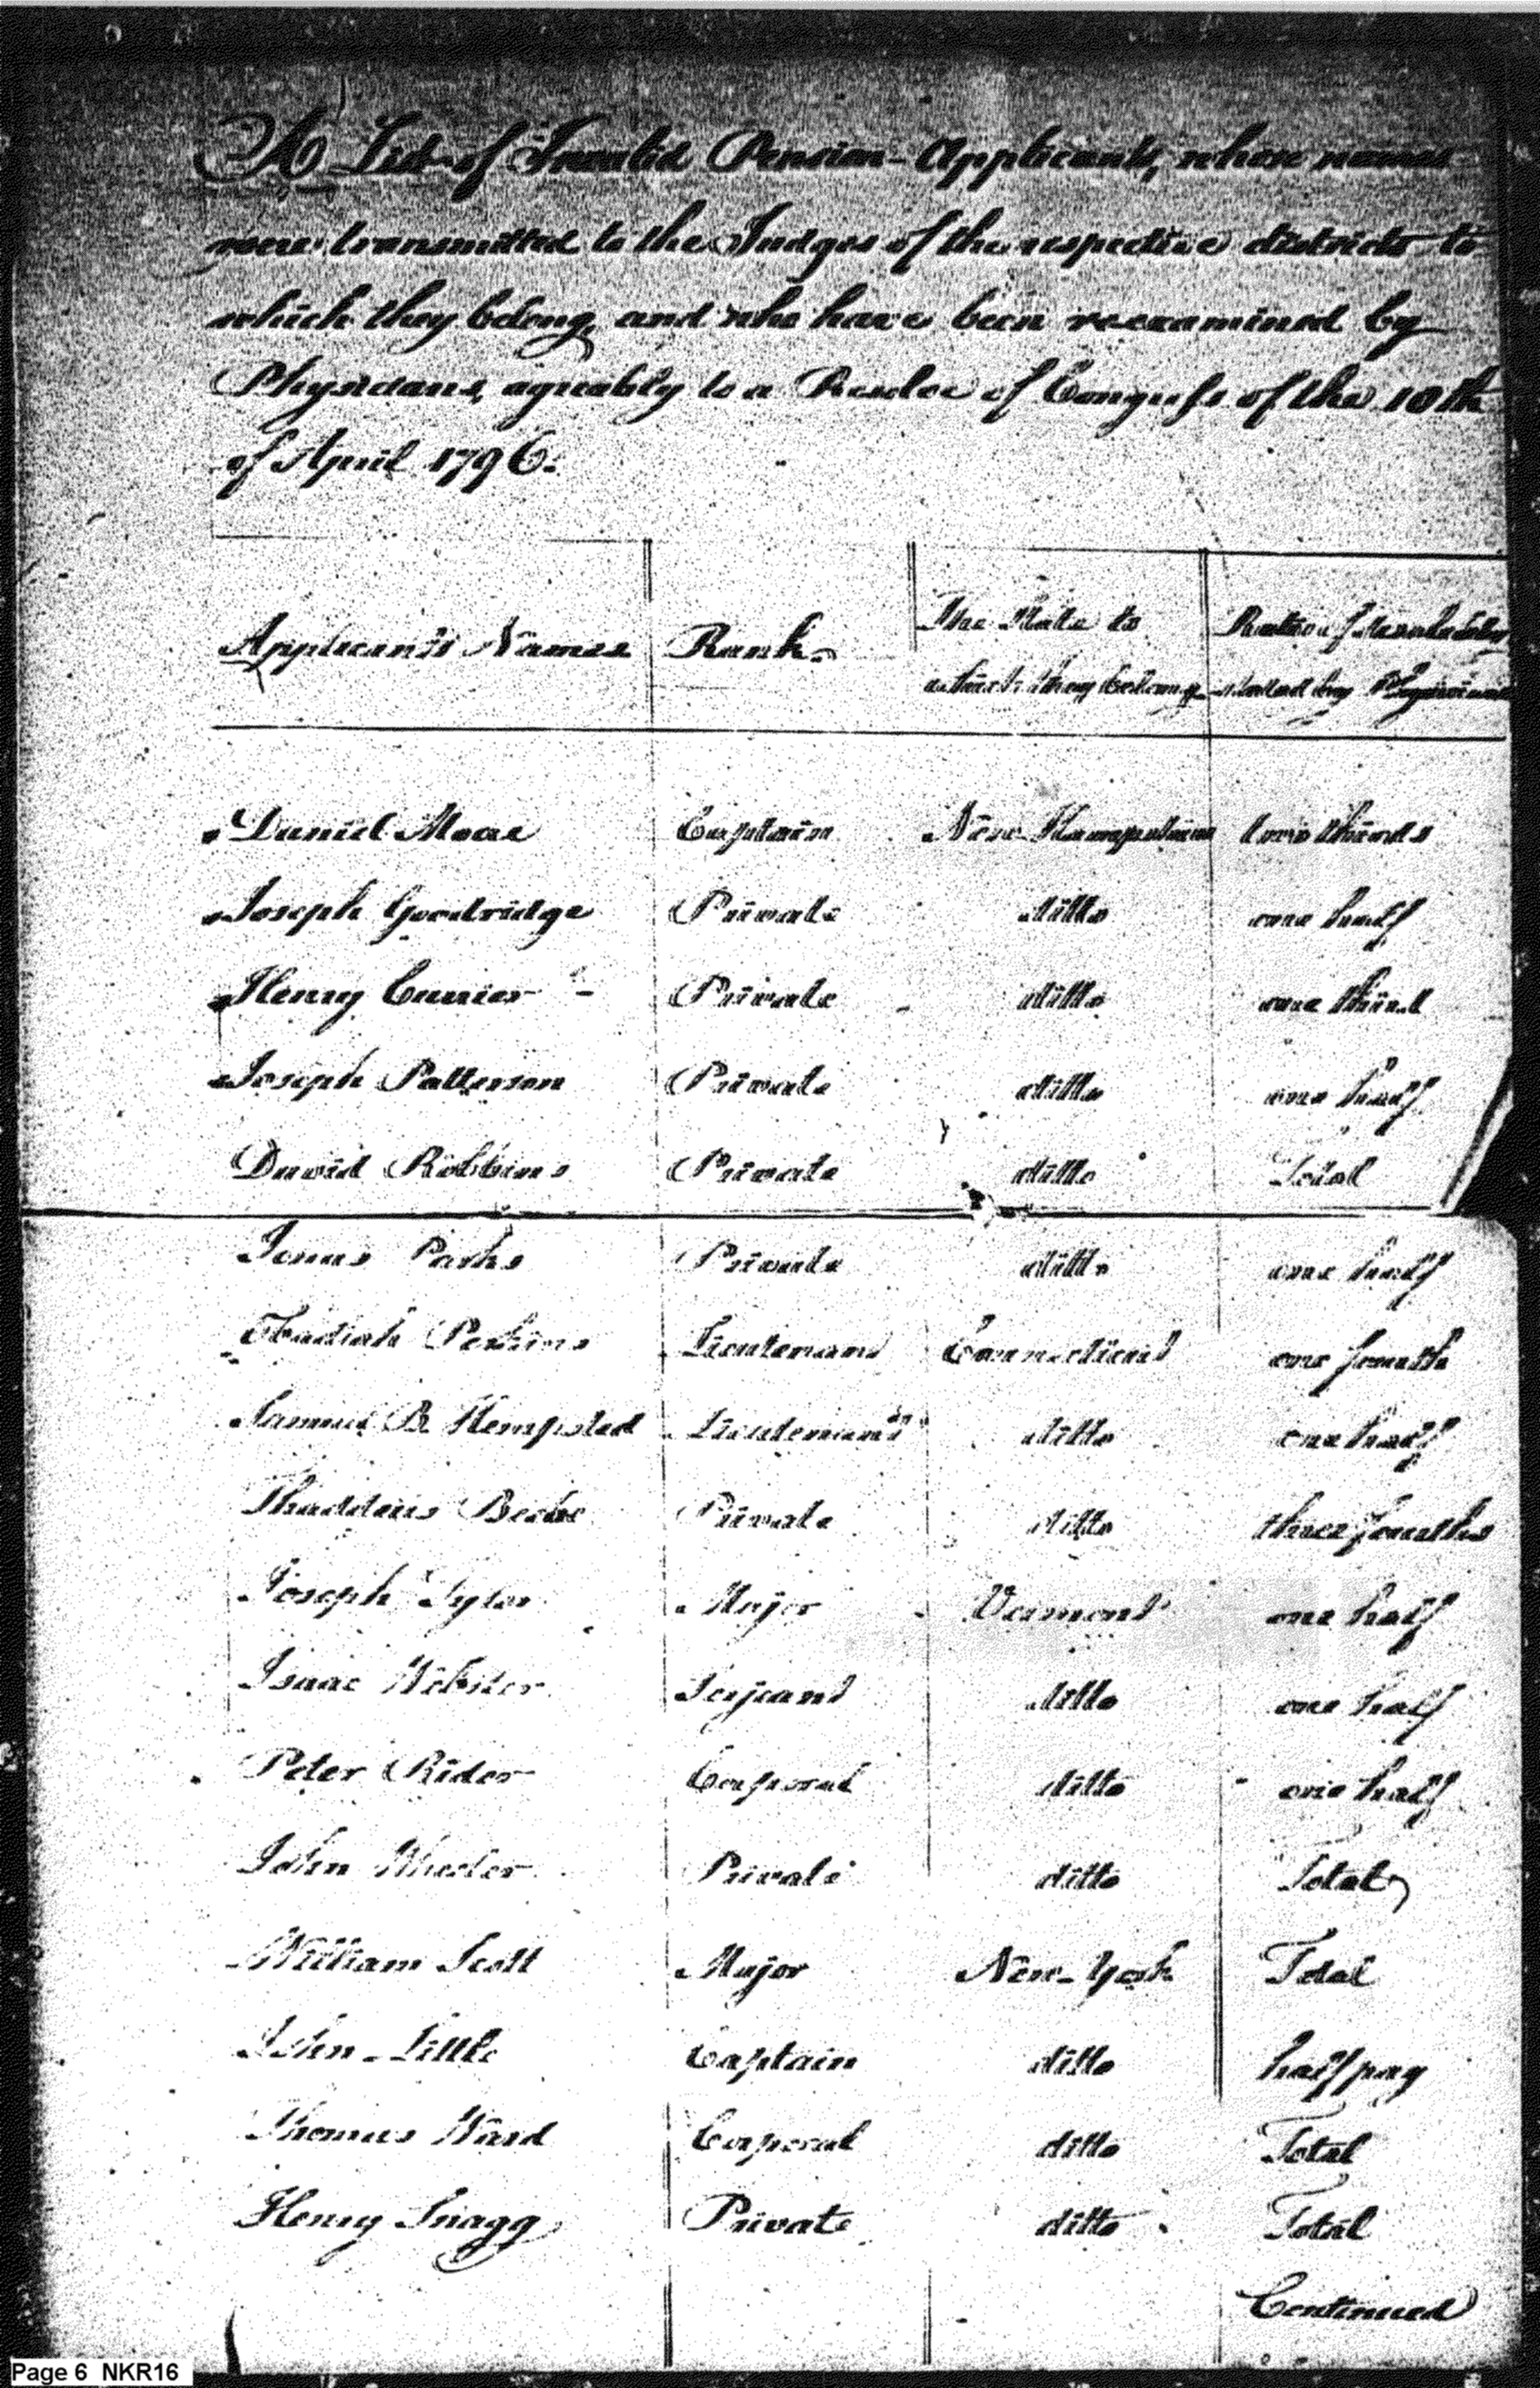 A List of Invalid Pension-Applicants, whose names
were transmitted to the Judges of the respective districts to
which they belong, and who have been reexamined by
Physicians, agreeably to a Resolve of Congress of the 10th
of April 1796.
Applicants Names Rank The State to which they belong Ratio of disability stated by Physicians
Daniel Moore Captain New-Hampshire two thirds
Joseph Goodridge Private ditto one half
Henry Currier Private ditto one third
Joseph Patterson Private ditto one half
David Robbins Private ditto Total
Jonas Parks Private ditto one half
Obadiah Perkins Lieutenant Connecticut one fourth
Samuel B Hempsted Lieutenant ditto one half
Thaddeus Beebe Private ditto three fourths
Joseph Tyler Major Vermont one half
Isaac Webster Serjeant ditto one half
Peter Rider Corporal ditto one half
John Wheeler Private ditto Total
William Scott Major New-York Total
John Little Captain ditto half pay
Thomas Ward Corporal ditto Total
Henry Snagg Private ditto Total
Continued
Page 6 NKR16